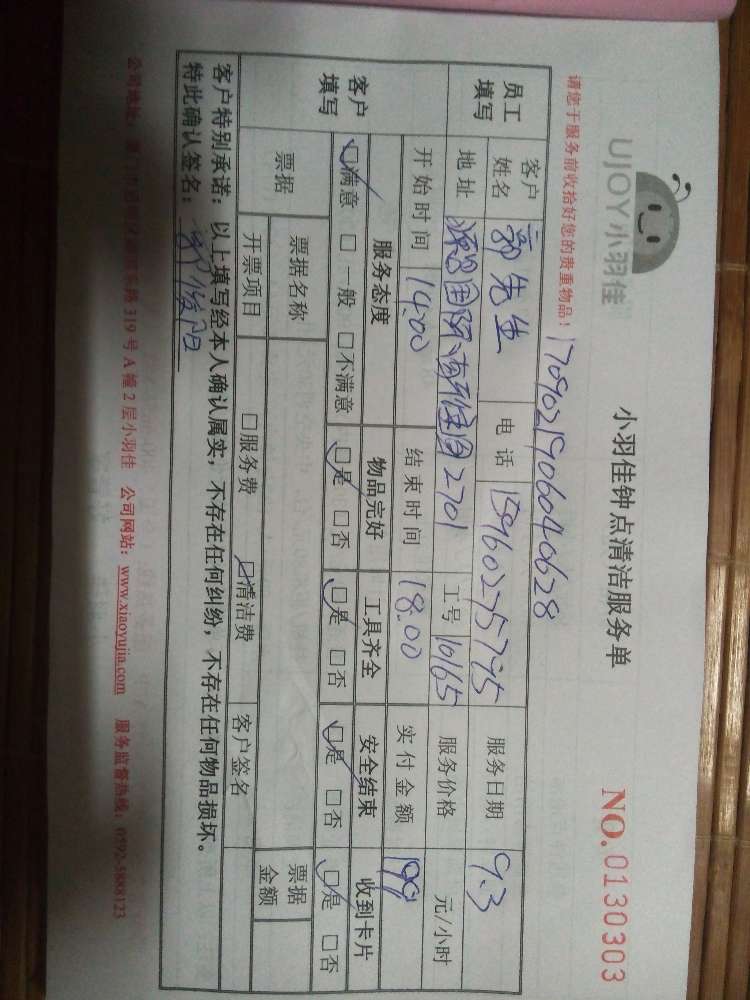 UJOY小羽佳
小羽佳钟点清洁服务单
NO.0130303
请您于服务前收拾好您的贵重物品！
1709021906040628
员工填写 客户姓名 郭先生 电话 15960275795 服务日期 9.3
地址 源昌国际 2701 工号 10165 服务价格 元/小时
开始时间 14:00 结束时间 18:00 实付金额 199
客户填写 服务态度 物品完好 工具齐全 安全结束 收到卡片
☑满意 □一般 □不满意 ☑是 □否 ☑是 □否 ☑是 □否 ☑是 □否
票据 票据名称 票据金额
开票项目 □服务费 ☑清洁费 客户签名
客户特别承诺：以上填写经本人确认属实，不存在任何纠纷，不存在任何物品损坏。
特此确认签名：
公司地址： 319号A幢2层小羽佳 公司网站：www.xiaoyujia.com 服务监督热线：0592-5888123